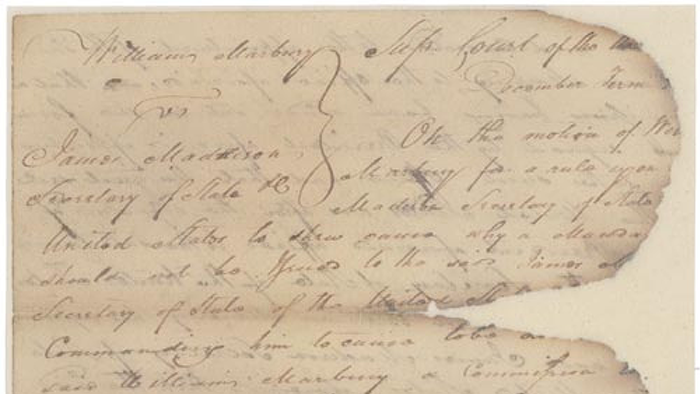 William Marbury Supr. Court of the
December Term
vs
On the motion of
James Maddison, Marbury for a rule upon
Secretary of State &c Secretary of State
United States to shew cause why a
should not be Issued to the said James
Secretary of State of the United
Commanding him to cause to be
said William Marbury a Commission